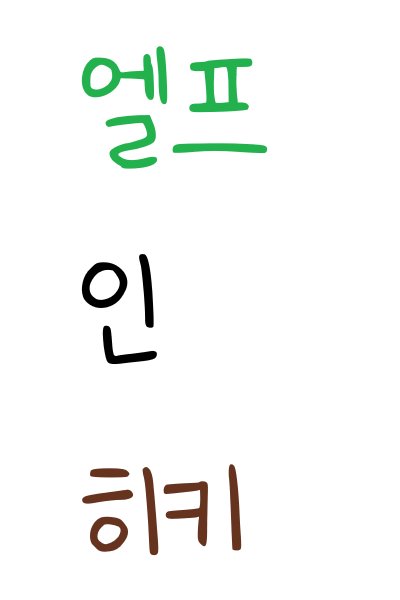 엘프
인
히키